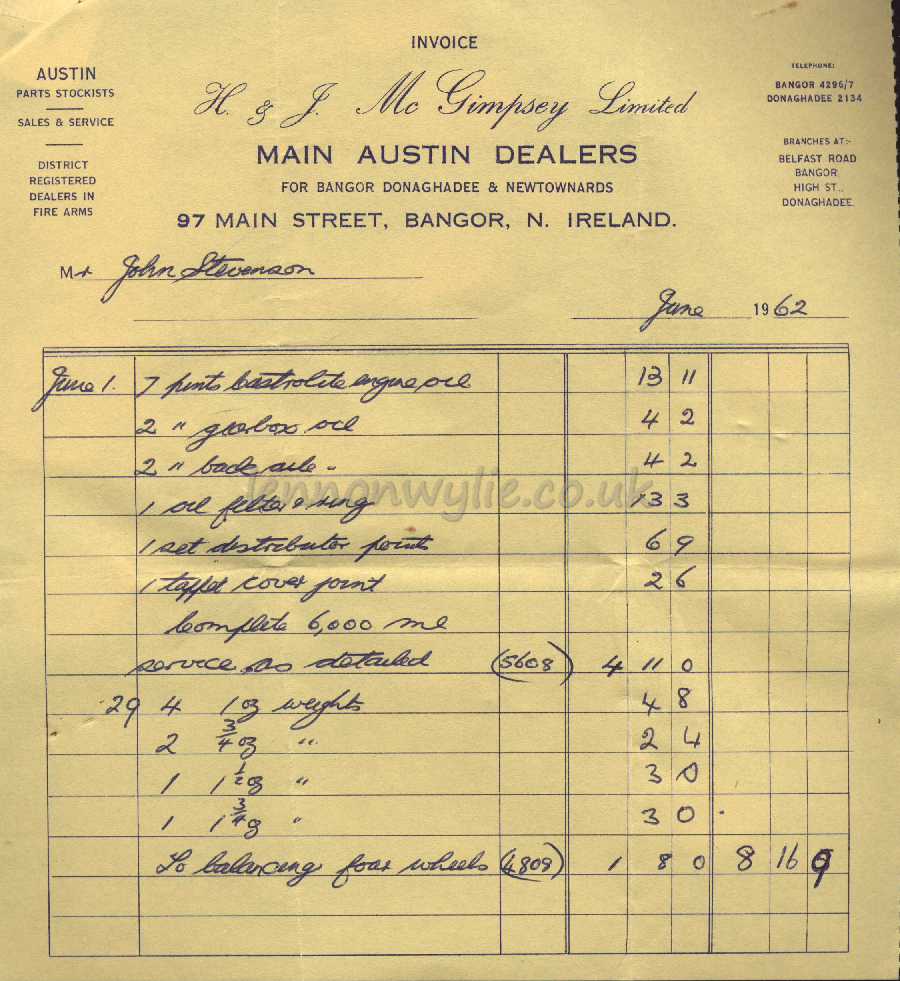 INVOICE
AUSTIN
PARTS STOCKISTS
SALES & SERVICE
DISTRICT
REGISTERED
DEALERS IN
FIRE ARMS
H. & J. Mc Gimpsey Limited
MAIN AUSTIN DEALERS
FOR BANGOR DONAGHADEE & NEWTOWNARDS
97 MAIN STREET, BANGOR, N. IRELAND.
TELEPHONE:
BANGOR 4296/7
DONAGHADEE 2134
BRANCHES AT:-
BELFAST ROAD
BANGOR
HIGH ST.,
DONAGHADEE.
Mr John Stevenson
June 1962
June 1. 7 pints Castrolite engine oil 13 11
2 " gearbox oil 4 2
2 " back axle " 4 2
1 oil filter & ring 13 3
1 set distributor points 6 9
1 tappet cover joint 2 6
Complete 6,000 ml
service as detailed (5608) 4 11 0
29 4 1 oz weights 4 8
2 3/4 oz " 2 4
1 1 1/2 oz " 3 0
1 1 3/4 oz " 3 0
To balancing four wheels (4809) 1 8 0 8 16 9
lennonwylie.co.uk